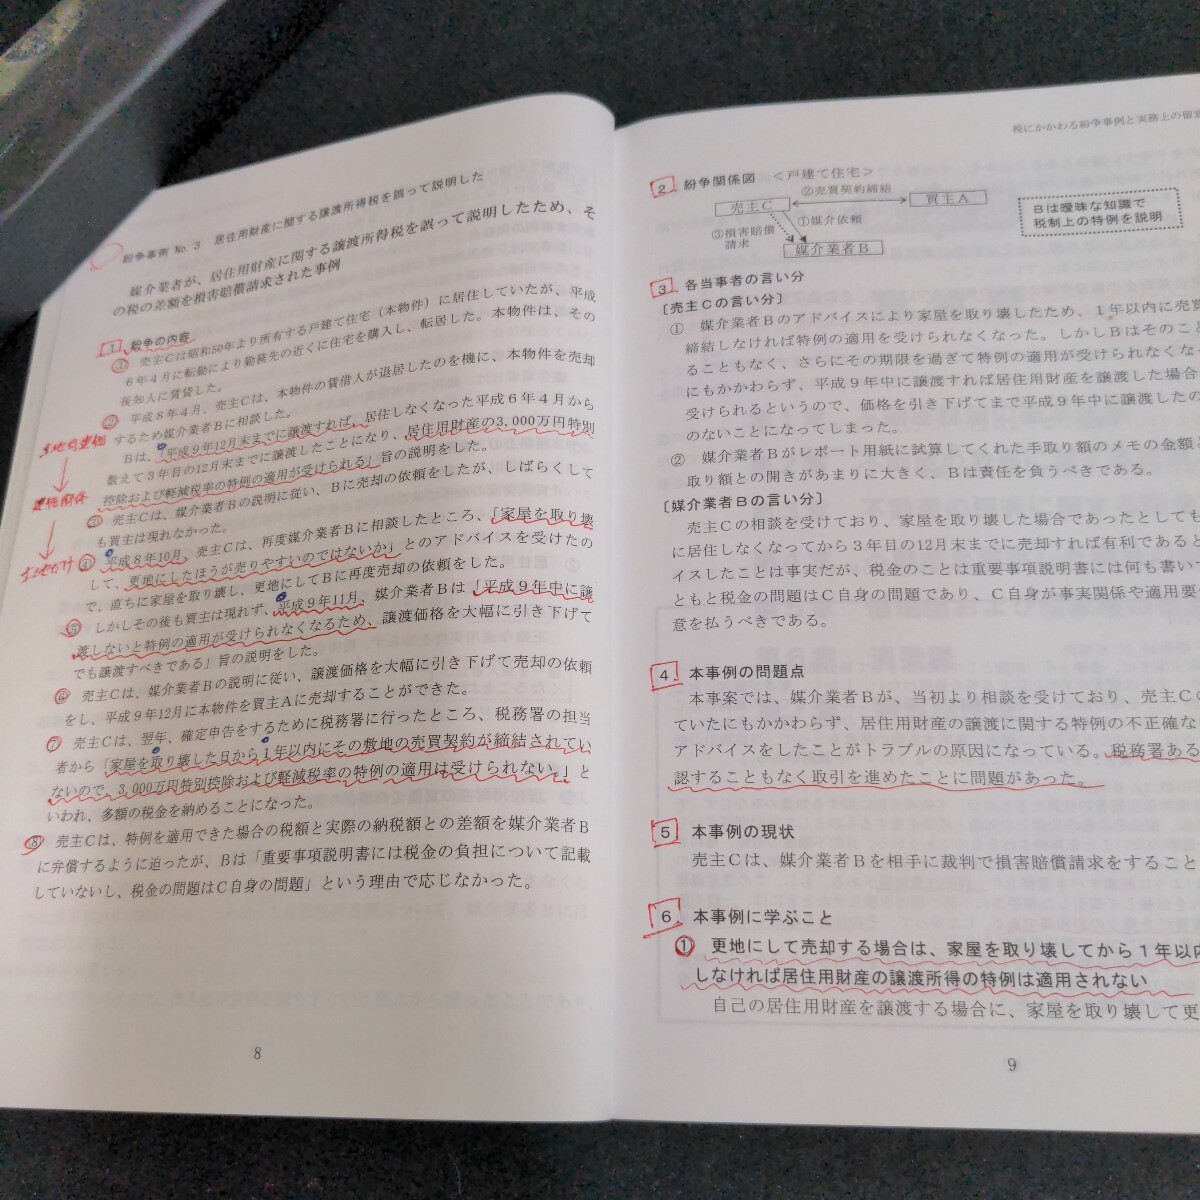 紛争事例 No.3 居住用財産に関する譲渡所得税を誤って説明した
媒介業者が、居住用財産に関する譲渡所得税を誤って説明したため、そ
の税の差額を損害賠償請求された事例
1 紛争の内容
① 売主Cは昭和50年より所有する戸建て住宅(本物件)に居住していたが、平成
6年4月に転勤により勤務先の近くに住宅を購入し、転居した。本物件は、その
後知人に賃貸した。
② 平成8年4月、売主Cは、本物件の賃借人が退居したのを機に、本物件を売却
するため媒介業者Bに相談した。
Bは、「平成9年12月末までに譲渡すれば、居住しなくなった平成6年4月から
数えて3年目の12月末までに譲渡したことになり、居住用財産の3,000万円特別
控除および軽減税率の特例の適用が受けられる」旨の説明をした。
③ 売主Cは、媒介業者Bの説明に従い、Bに売却の依頼をしたが、しばらくして
も買主は現れなかった。
④ 平成8年10月、売主Cは、再度媒介業者Bに相談したところ、「家屋を取り壊
して、更地にしたほうが売りやすいのではないか」とのアドバイスを受けたの
で、直ちに家屋を取り壊し、更地にしてBに再度売却の依頼をした。
⑤ しかしその後も買主は現れず、平成9年11月、媒介業者Bは「平成9年中に譲
渡しないと特例の適用が受けられなくなるため、譲渡価格を大幅に引き下げて
でも譲渡すべきである」旨の説明をした。
⑥ 売主Cは、媒介業者Bの説明に従い、譲渡価格を大幅に引き下げて売却の依頼
をし、平成9年12月に本物件を買主Aに売却することができた。
⑦ 売主Cは、翌年、確定申告をするために税務署に行ったところ、税務署の担当
者から「家屋を取り壊した日から1年以内にその敷地の売買契約が締結されてい
ないので、3,000万円特別控除および軽減税率の特例の適用は受けられない。」と
いわれ、多額の税金を納めることになった。
⑧ 売主Cは、特例を適用できた場合の税額と実際の納税額との差額を媒介業者B
に弁償するように迫ったが、Bは「重要事項説明書には税金の負担について記載
していないし、税金の問題はC自身の問題」という理由で応じなかった。
8
税にかかわる紛争事例と実務上の留意
2 紛争関係図 <戸建て住宅>
②売買契約締結
売主C
買主A
①媒介依頼
③損害賠償
請求
媒介業者B
Bは曖昧な知識で
税制上の特例を説明
3 各当事者の言い分
〔売主Cの言い分〕
① 媒介業者Bのアドバイスにより家屋を取り壊したため、1年以内に売買
締結しなければ特例の適用を受けられなくなった。しかしBはそのこ
ることもなく、さらにその期限を過ぎて特例の適用が受けられなくな
にもかかわらず、平成9年中に譲渡すれば居住用財産を譲渡した場合
受けられるというので、価格を引き下げてまで平成9年中に譲渡したの
のないことになってしまった。
② 媒介業者Bがレポート用紙に試算してくれた手取り額のメモの金額
取り額との開きがあまりに大きく、Bは責任を負うべきである。
〔媒介業者Bの言い分〕
売主Cの相談を受けており、家屋を取り壊した場合であったとしても
に居住しなくなってから3年目の12月末までに売却すれば有利であると
イスしたことは事実だが、税金のことは重要事項説明書には何も書いて
ともと税金の問題はC自身の問題であり、C自身が事実関係や適用要
意を払うべきである。
4 本事例の問題点
本事案では、媒介業者Bが、当初より相談を受けており、売主Cの
ていたにもかかわらず、居住用財産の譲渡に関する特例の不正確な
アドバイスをしたことがトラブルの原因になっている。税務署ある
認することもなく取引を進めたことに問題があった。
5 本事例の現状
売主Cは、媒介業者Bを相手に裁判で損害賠償請求をすること
6 本事例に学ぶこと
① 更地にして売却する場合は、家屋を取り壊してから1年以内
しなければ居住用財産の譲渡所得の特例は適用されない
自己の居住用財産を譲渡する場合に、家屋を取り壊して更
9